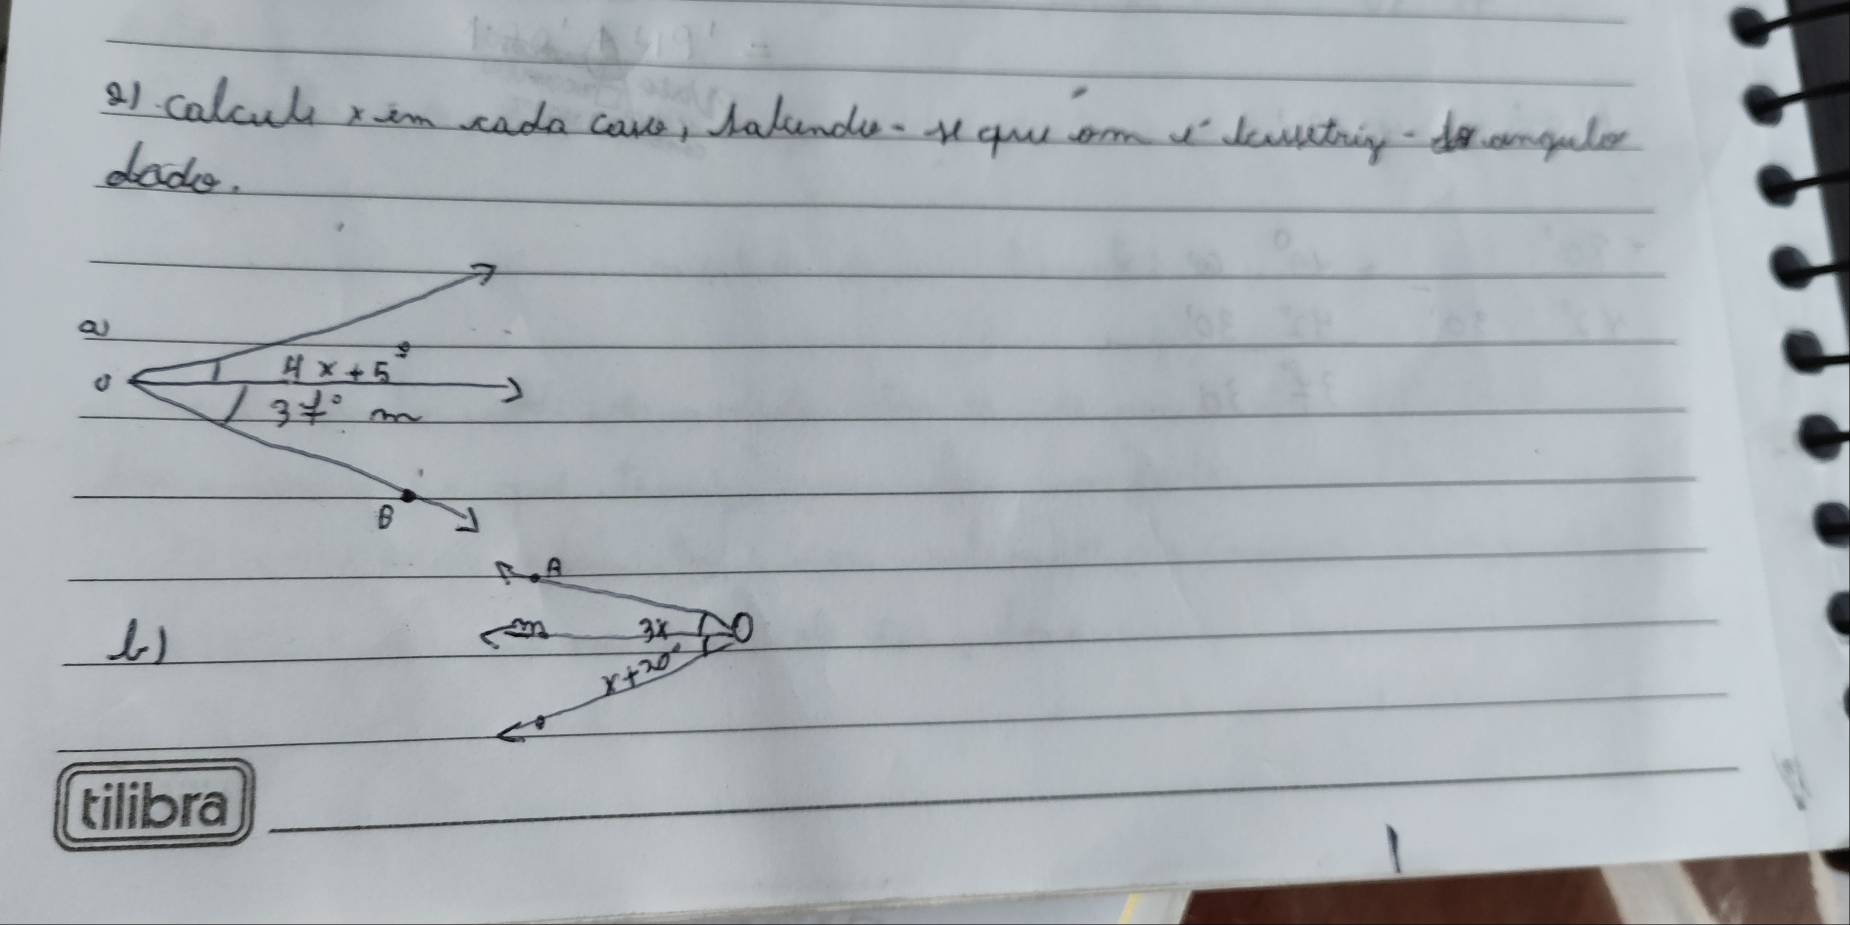 2) calcule x em cada caso, sabendo-se que om é bissetriz do angulo
dado.
a)
4x+5°
O
37° m
B
A
b)
m 3x O
x+20°
tilibra